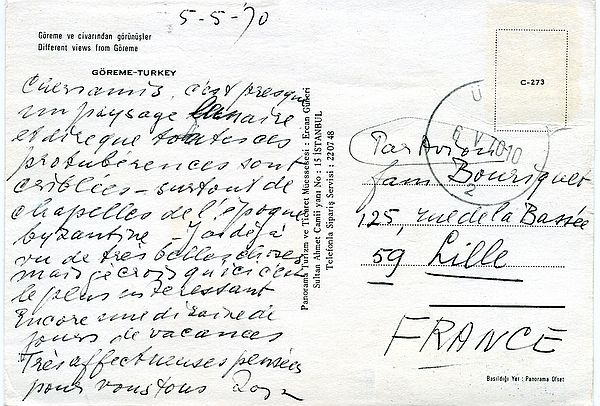 5-5-70
Göreme ve civarından görünüşler
Different views from Göreme
GÖREME-TURKEY
Chers amis, c'est presque
un paysage lunaire
et dire que toutes ces
protubérences sont
criblées - surtout de
chapelles de l'époque
byzantine - J'ai déjà
vu de très belles choses
mais je crois qu'ici c'est
le plus intéressant
Encore une dizaine de
jours de vacances
Très affectueuses pensées
pour vous tous
Panorama Turizm ve Ticaret Müessesesi : Ercan Gülleri
Sultan Ahmet Camii yanı No : 15 İSTANBUL
Telefonla Sipariş Servisi : 22 07 48
C-273
Par Avion
fam Bouriquet
125, rue de la Bassée
59 Lille
FRANCE
Basıldığı Yer : Panorama Ofset